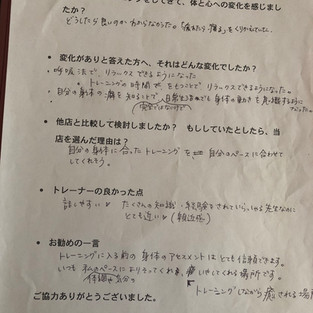 をしてきて、体と心への変化を感じましたか?
どうしたら良いのかわからなかった。「疲れたら寝る」をくりかえしていた。
変化がありと答えた方へ、それはどんな変化でしたか?
・呼吸法で、リラックスできるようになった
・トレーニングの時間で、リラックスできるようになった。
・自分の身体の癖を知ることで、日常生活でも身体の動きを意識するように
なった。
他店と比較して検討しましたか? もししていたとしたら、当
店を選んだ理由は?
自分の身体に合ったトレーニングを 自分のペースに合わせて
してくれそう。
トレーナーの良かった点
話しやすい たくさんの知識・経験をされていらっしゃる先生なのに
とても近い (親近感)
お勧めの一言
トレーニングに入る前の身体のアセスメントはとても信頼できます。
いつも私のペースによりそってくれ、癒しやしてくれる場所です。
体調や気分の
トレーニングしながら癒される場所
ご協力ありがとうございました。